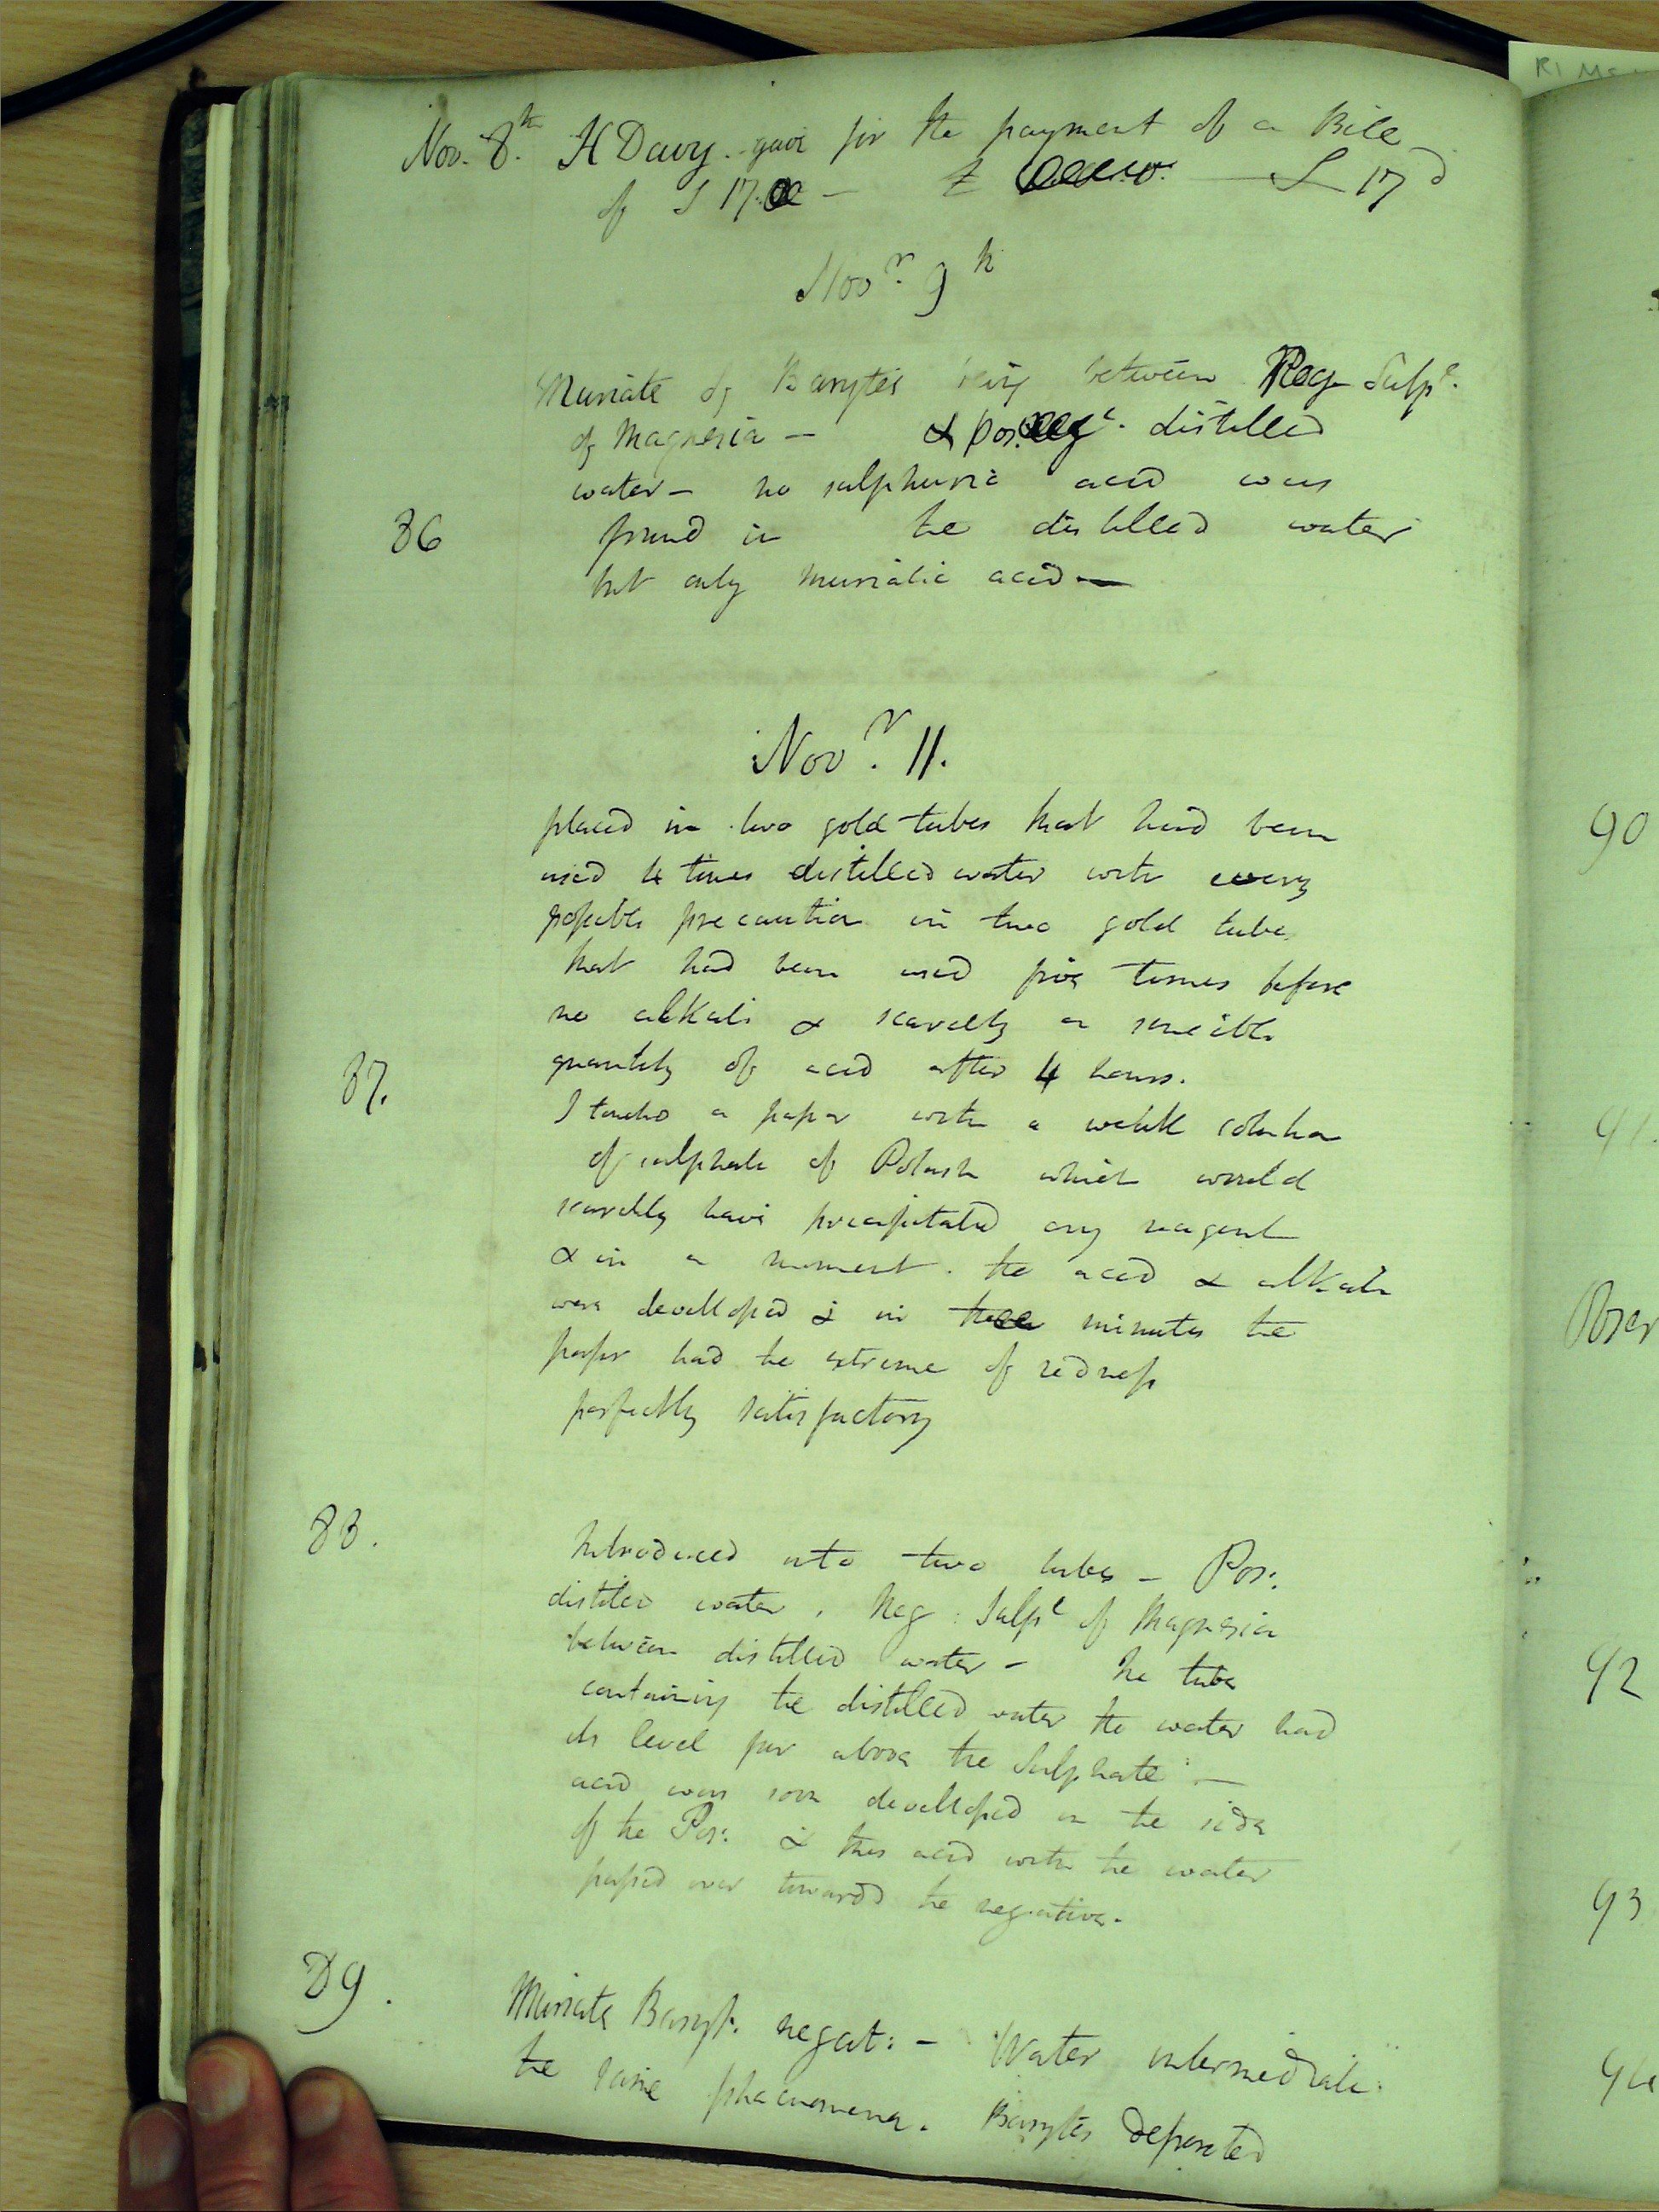 RI MS
Nov. 8th. H Davy. gave for the payment of a Bill
of £ 17. — £ — £ 17
Novr. 9th
Muriate of Barytes being between Neg Sulpe.
of Magnesia — & pos. distilled
water — no sulphuric acid was
86 found in the distilled water
but only muriatic acid —
Novr. 11.
placed in two gold tubes that had been
used 4 times distilled water with every
possible precaution in two gold tube
that had been used five times before
no alkali & scarcely a sensible
87. quantity of acid after 4 hours.
I touchd a paper with a weak solution
of sulphate of Potash which would
scarcely have precipitated any reagent
& in a moment. the acid & alkali
were developed & in minutes the
paper had the extreme of redness
perfectly satisfactory
88. Introduced into two tubes — Pos:
distiled water, Neg: Sulpt of Magnesia
between distilled water — The tube
containing the distilled water the water had
its level far above the Sulphate —
acid was soon developed on the side
of the Pos: & this acid with the water
passed over towards the negative.
89. Muriate Baryt. negat: — Water intermediate.
the same phaenomena. Barytes deposited
90
91.
Poser
92
93
94